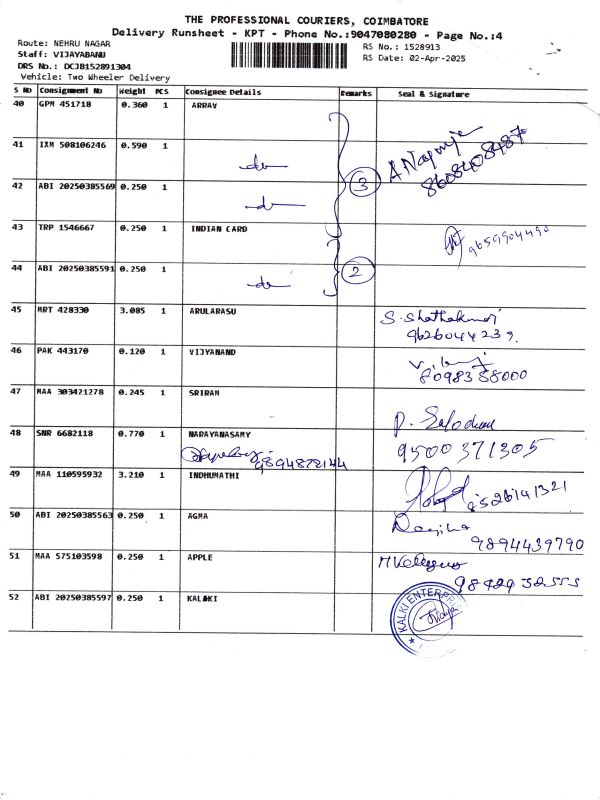 THE PROFESSIONAL COURIERS, COIMBATORE
Delivery Runsheet - KPT - Phone No.:9047080280 - Page No.:4
Route: NEHRU NAGAR
RS No.: 1528913
Staff: VIJAYABANU
RS Date: 02-Apr-2025
DRS No.: DCJB152891304
Vehicle: Two Wheeler Delivery
S No Consignment No Weight PCS Consignee Details Remarks Seal & Signature
40 GPM 451718 0.360 1 ARRAV
41 IXM 508106246 0.590 1
8608408487
42 ABI 20250385569 0.250 1 3
43 TRP 1546667 0.250 1 INDIAN CARD
9659904490
44 ABI 20250385591 0.250 1 2
45 MRT 428330 3.085 1 ARULARASU
9626044239.
46 PAK 443170 0.120 1 VIJYANAND
8098388000
47 MAA 303421278 0.245 1 SRIRAM
48 SNR 6682118 0.770 1 NARAYANASAMY
9500371305
9894872144
49 MAA 110595932 3.210 1 INDHUMATHI
8526141321
50 ABI 20250385563 0.250 1 AGMA
9894439790
51 MAA 575103598 0.250 1 APPLE
52 ABI 20250385597 0.250 1 KALAKI
KALKI ENTERPR